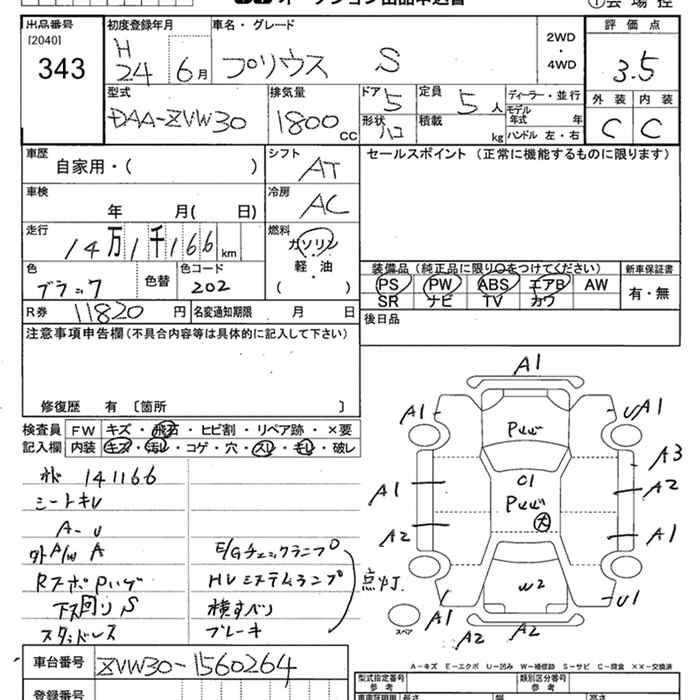 オークション出品申込書
①会場控
出品番号
[2040]
343
初度登録年月
H
24 6月
車名・グレード
プリウス S
2WD
・
4WD
評価点
3.5
外装 内装
C C
型式
DAA-ZVW30
排気量
1800cc
ドア 5
定員 5人
形状 ハコ
積載 kg
ディーラー・並行
モデル年式 年
ハンドル 左・右
車歴
自家用・( )
シフト
AT
車検
年 月( 日)
冷房
AC
走行
14万1千166km
燃料
ガソリン
・
軽・油
( )
色
ブラック
色替
色コード
202
R券 11820円
名変通知期限 月 日
セールスポイント (正常に機能するものに限ります)
装備品 (純正品に限り○をつけてください)
新車保証書
PS PW ABS エアB AW
SR ナビ TV カワ
有・無
後日品
注意事項申告欄 (不具合内容等は具体的に記入して下さい)
修復歴 有 〔箇所 〕
検査員記入欄
FW キズ・飛石・ヒビ割・リペア跡・×要
内装 キズ・汚レ・コゲ・穴・スレ・キレ・破レ
141166
A-U
外A/W A
下廻り S
スタッドレス
E/Gチェックランプ
HVシステムランプ
横すべり
ブレーキ
点灯.
A1
A1
UA1
A3
A1
A2
A2
A1
C1
大
W2
A1
U1
A2
A2
スペア
車台番号 ZVW30-1560264
登録番号
A－キズ E－エクボ U－凹み W－補修跡 S－サビ C－腐食 XX－交換済
型式指定番号
参考
類別区分番号
参考
長さ
幅
高さ